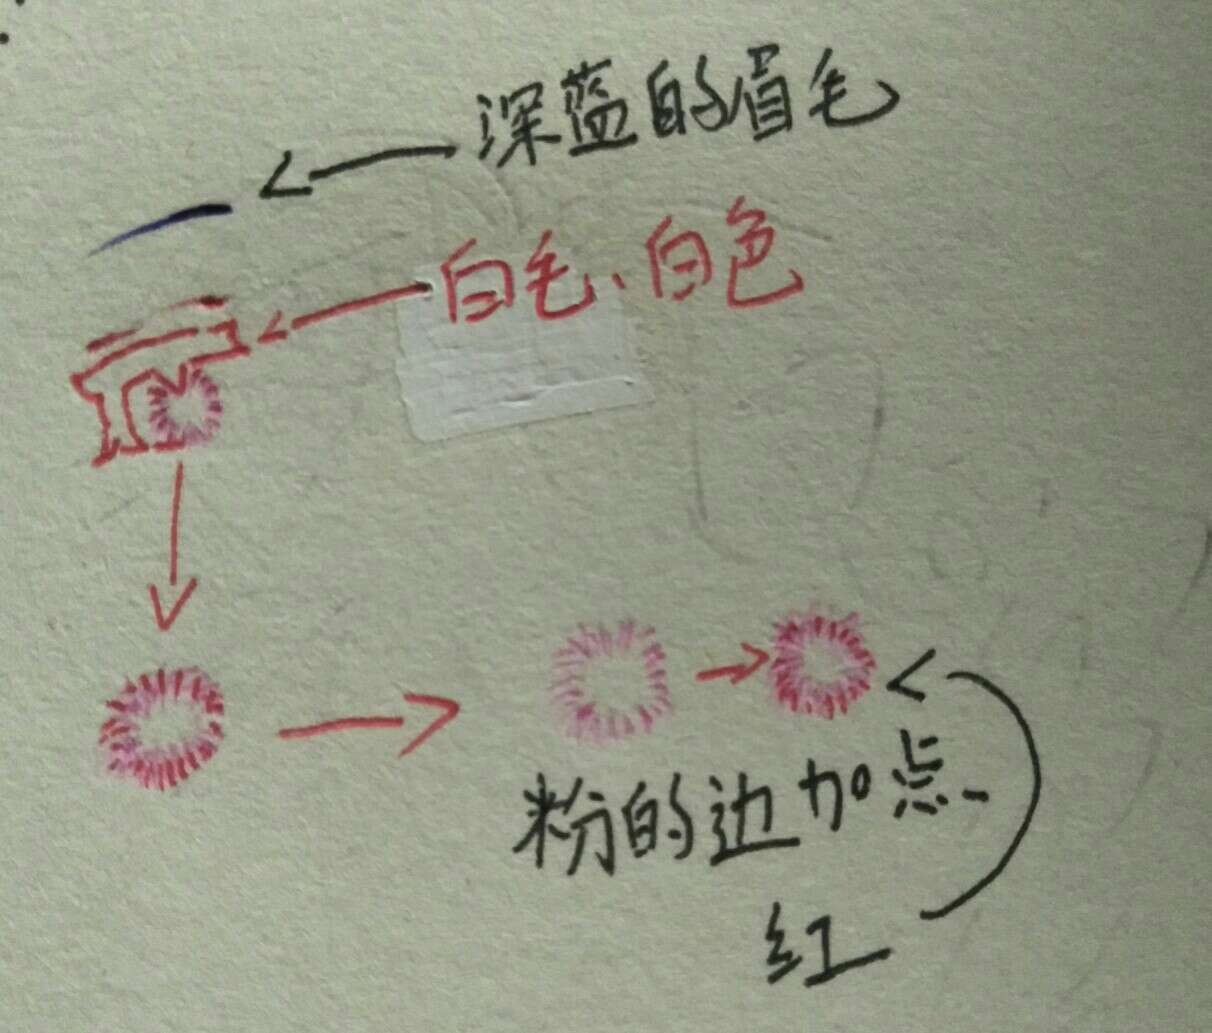 深蓝的眉毛
白毛、白色
粉的边加点
红